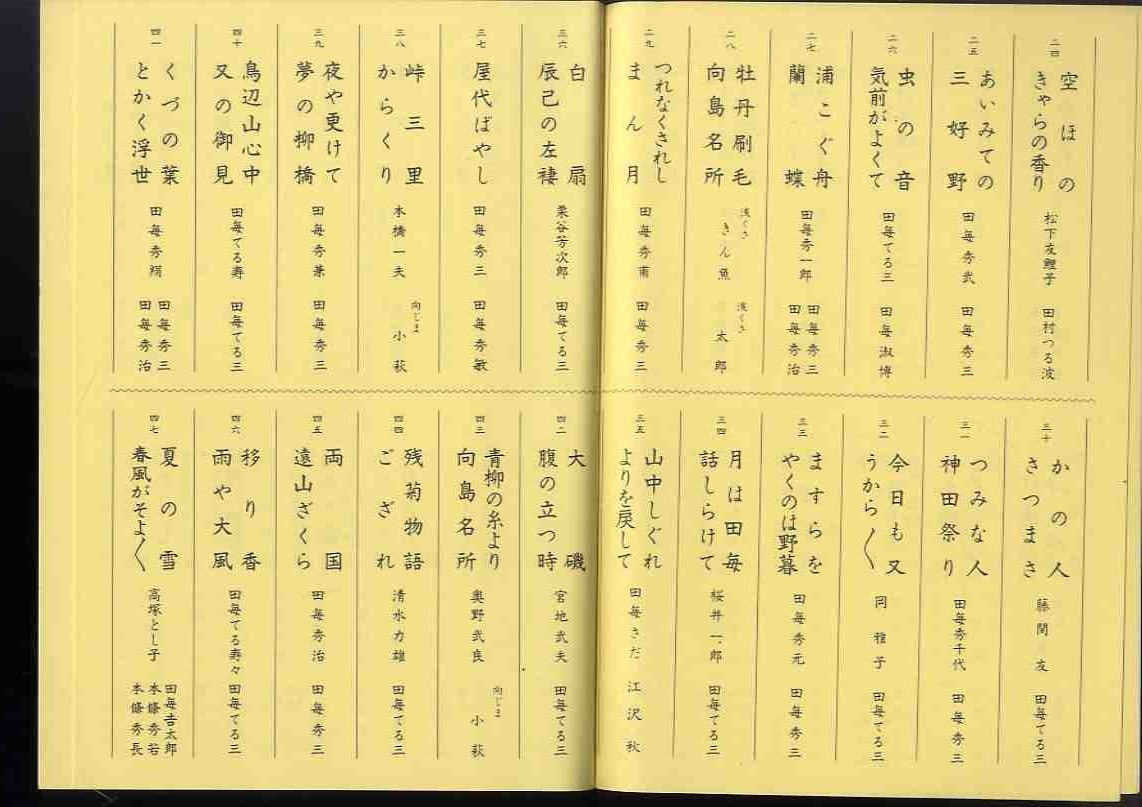 二四
空ほの
きゃらの香り
松下友鯉子
田村つる波
二五
あいみての
三好野
田每秀武
田每秀三
二六
虫の音
気前がよくて
田每てる三
田每淑博
二七
浦こぐ舟
蘭蝶
田每秀一郎
田每秀三
田每秀治
二八
牡丹刷毛
向島名所
浅くさ
きん魚
浅くさ
太郎
二九
つれなくされし
まん月
田每秀甫
田每秀三
三十
かの人
さつまさ
藤間友
田每てる三
三一
つみな人
神田祭り
田每秀千代
田每秀三
三二
今日も又
うから〱
岡雅子
田每てる三
三三
ますらを
やくのは野暮
田每秀元
田每秀三
三四
月は田每
話しらけて
桜井一郎
田每てる三
三五
山中しぐれ
よりを戻して
田每さだ
江沢秋
三六
白扇
辰己の左褄
栗谷芳次郎
田每てる三
三七
屋代ばやし
田每秀三
田每秀敏
三八
峠三里
からくり
本橋一夫
向じま
小萩
三九
夜や更けて
夢の柳橋
田每秀兼
田每秀三
四十
鳥辺山心中
又の御見
田每てる寿
田每てる三
四一
くづの葉
とかく浮世
田每秀絹
田每秀三
田每秀治
四二
大磯
腹の立つ時
宮地武夫
田每てる三
四三
青柳の糸より
向島名所
奥野武良
向じま
小萩
四四
残菊物語
ござれ
清水力雄
田每てる三
四五
両国
遠山ざくら
田每秀治
田每秀三
四六
移り香
雨や大風
田每てる寿々
田每てる三
四七
夏の雪
春風がそよ〱
高塚とし子
田每吉太郎
本條秀若
本條秀長